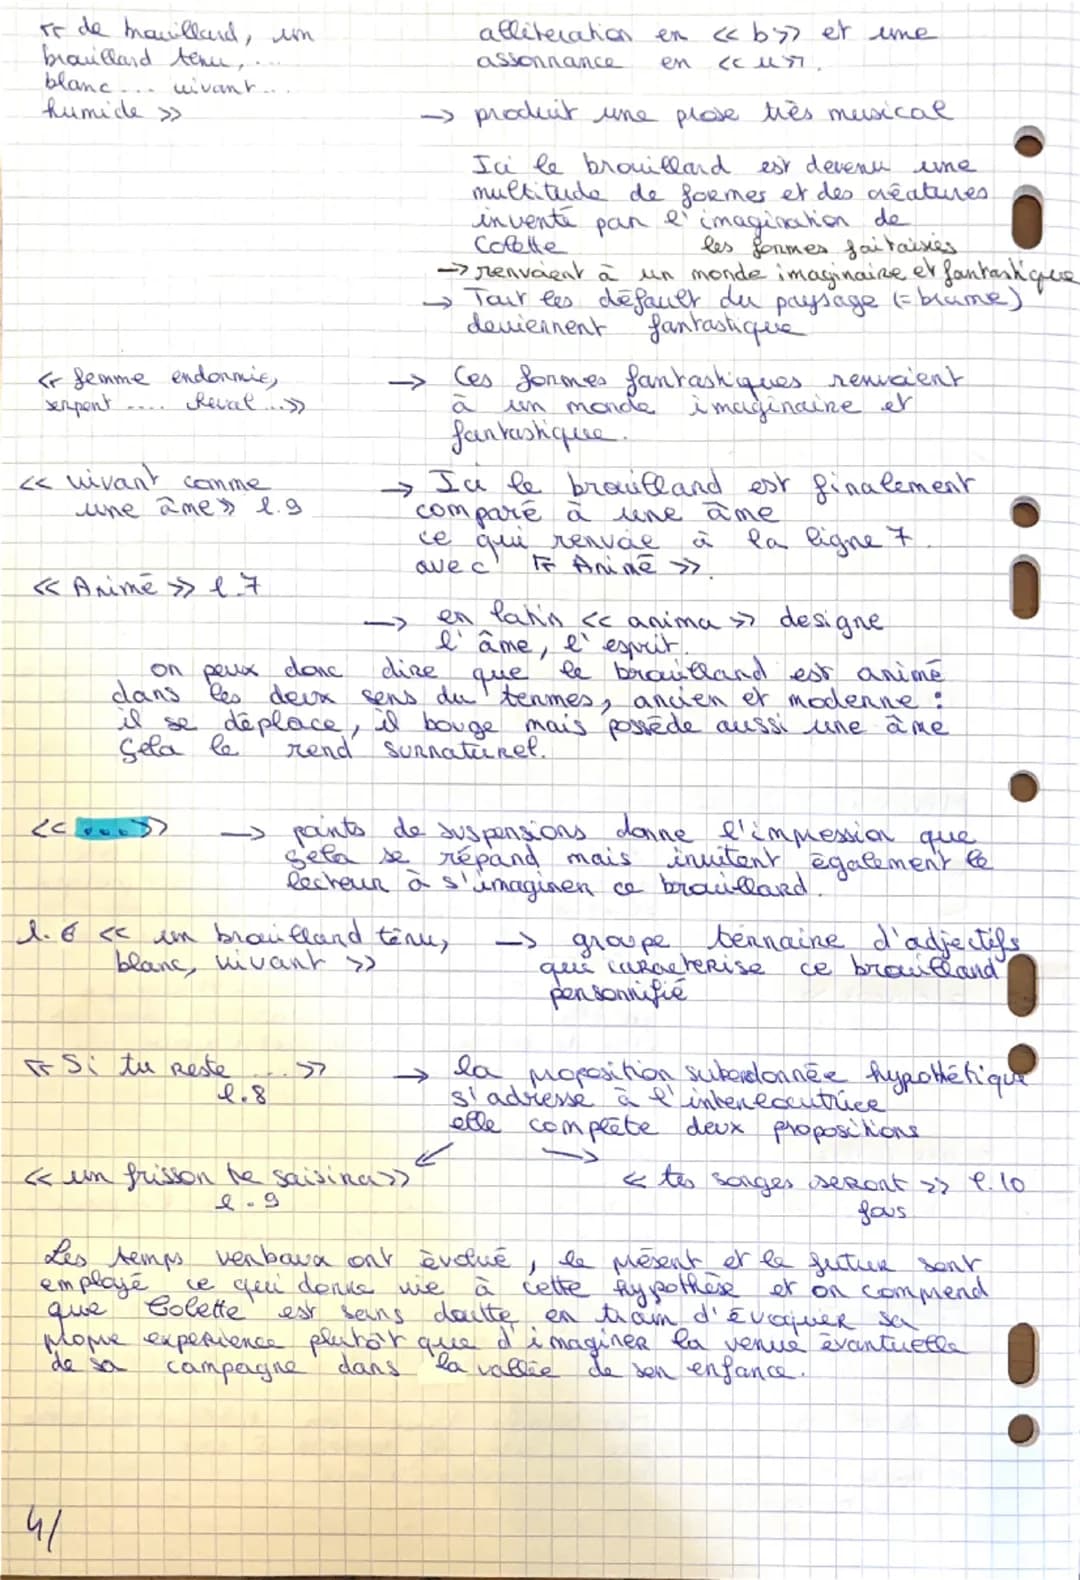 << de brouillard, un
brouillard tenu, ...
blanc... vivant...
humide >>
allitération en << b >> et une
assonnance en << u >>.
→ produit une prose très musical
Ici le brouillard est devenu une
multitude de formes et des créatures
inventé par l'imagination de
Colette
les formes faitaisies
→ renvoient à un monde imaginaire et fantastique
→ Tout les défault du paysage (= brume)
deviennent fantastique
<< femme endormie,
serpent .... cheval ...>>
→ Ces formes fantastiques renvoient
à un monde imaginaire et
fantastique.
<< vivant comme
une âme >> l.9
→ Ici le brouilland est finalement
comparé à une âme
ce qui renvoie à la ligne 7.
avec << Animé >>.
<< Animé >> l.7
→ en latin << anima >> designe
l'âme, l'esprit.
on peux donc dire que le brouilland est animé
dans les deux sens du termes, ancien et moderne :
il se déplace, il bouge mais possède aussi une âme
Çela le rend surnaturel.
<< ... >>
→ points de suspensions donne l'impression que
çela se répand mais invitent également le
lecteur à s'imaginer ce brouillard.
l.6 << un brouilland ténu,
blanc, vivant >>
→ groupe ternnaire d'adjectifs
qui caracterise ce brouilland
personnifié
<< Si tu reste ... >>
l.8
→ la proposition subordonnée hypothétique
s'adresse à l'interlocutrice
elle complète deux propositions
<< un frisson te saisira >>
l.9
<< tes songes seront >> l.10
fous
Les temps verbaux ont évolué, le présent et le futur sont
employé ce qui donne vie à cette hypothèse et on comprend
que Colette est sans doutte en train d'évoquer sa
propre expérience plutôt que d'imaginer la venue évantuelle
de sa campagne dans la vallée de son enfance.
4/